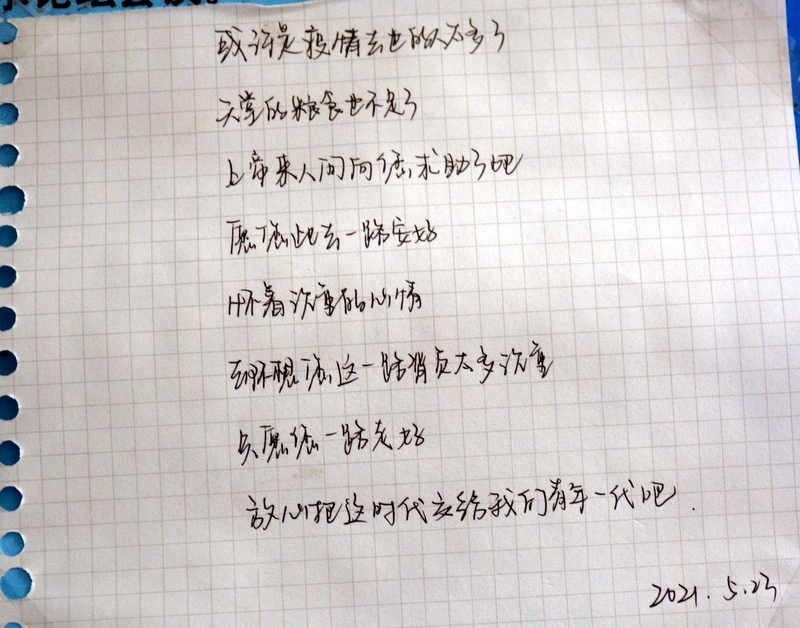 或许是疫情去世的人太多了
天堂的粮食也不足了
上帝来人间向您求助了吧
愿您此去一路安好
怀着沉重的心情
却不想您这一路背负太多沉重
只愿您一路走好
放心把这时代交给我们青年一代吧.
2021.5.23